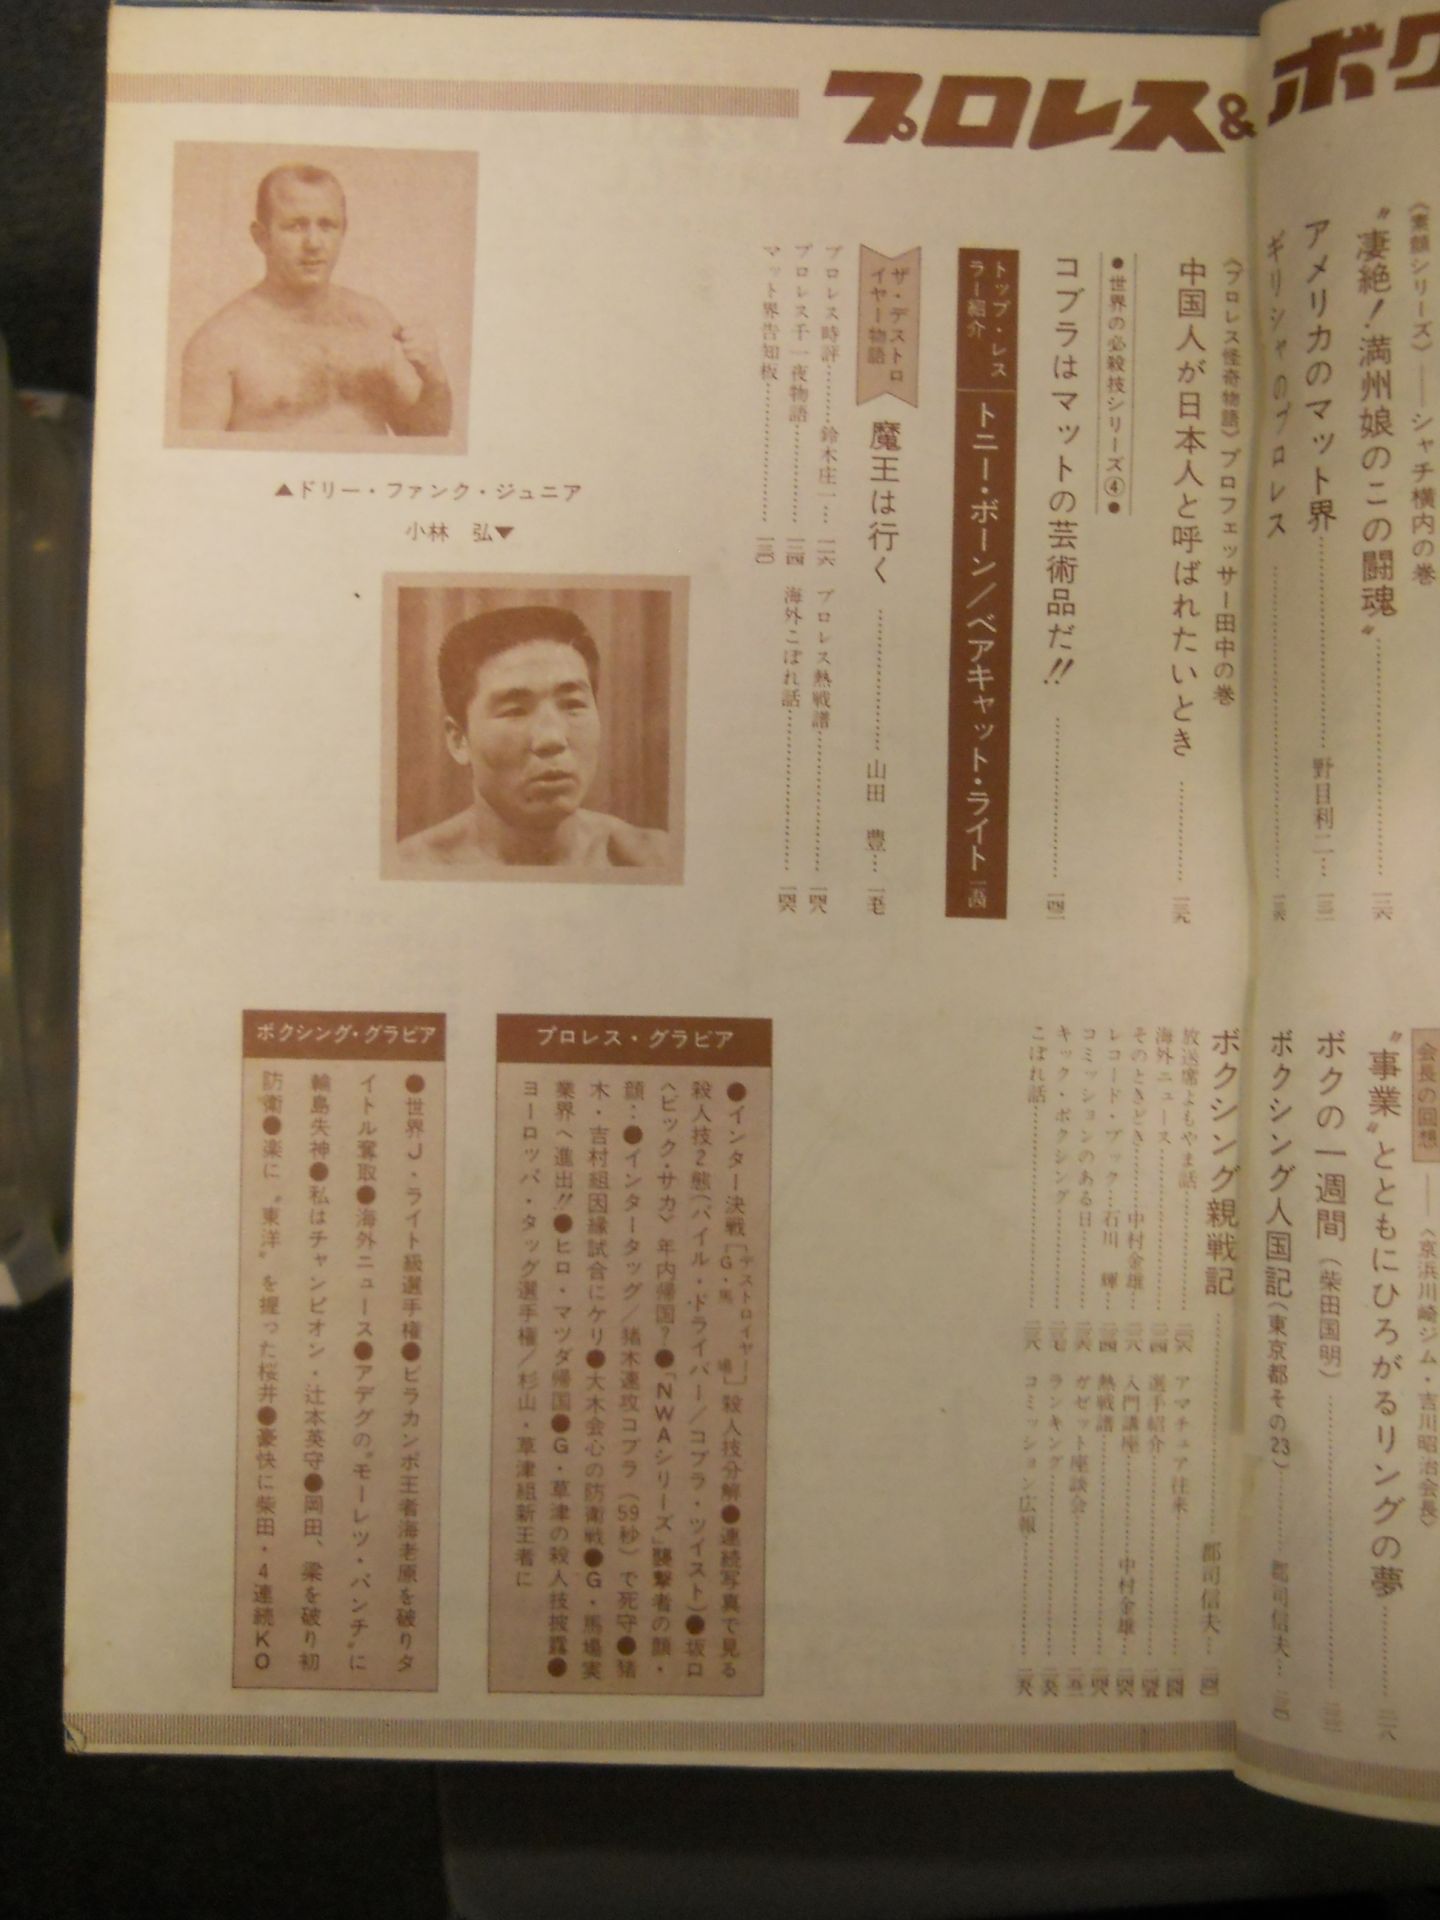 プロレス&ボク
〈素顔シリーズ〉――シャチ横内の巻
〝凄絶!満州娘のこの闘魂〟
アメリカのマット界……野目利二…
ギリシャのプロレス
〈プロレス怪奇物語〉プロフェッサー田中の巻
中国人が日本人と呼ばれたいとき……一三九
●世界の必殺技シリーズ④●
コブラはマットの芸術品だ!!
トップ・レスラー紹介
トニー・ボーン/ベアキャット・ライト
ザ・デストロイヤー物語
魔王は行く……山田 豊…
プロレス時評……鈴木庄一…一二六
プロレス千一夜物語
マット界告知板……一三〇
プロレス熱戦譜……一四八
海外こぼれ話……一四六
▲ドリー・ファンク・ジュニア
小林 弘▼
会長の回想
――〈京浜川崎ジム・吉川昭治会長〉
〝事業〟とともにひろがるリングの夢
ボクの一週間(柴田国明)
ボクシング人国記(東京都その23)……郡司信夫…
ボクシング親戦記……郡司信夫…
放送席よもやま話
海外ニュース
そのときどき……中村金雄…
レコード・ブック…石川 輝…
コミッションのある日
キック・ボクシング
こぼれ話
アマチュア往来
選手紹介
入門講座……中村金雄…
熱戦譜
ガゼット座談会
ランキング
コミッション広報
プロレス・グラビア
●インター決戦[デストロイヤー G・馬場]殺人技分解●連続写真で見る
殺人技2態(パイル・ドライバー/コブラ・ツイスト)●坂口
〈ビック・サカ〉年内帰国?●「NWAシリーズ」襲撃者の顔・
顔…●インタータッグ/猪木速攻コブラ(59秒)で死守●猪
木・吉村組因縁試合にケリ●大木会心の防衛戦●G・馬場実
業界へ進出!!●ヒロ・マツダ帰国●G・草津の殺人技披露●
ヨーロッパ・タッグ選手権/杉山・草津組新王者に
ボクシング・グラビア
●世界J・ライト級選手権●ビラカンポ王者海老原を破りタ
イトル奪取●海外ニュース●アデグの〝モーレツ・パンチ〟に
輪島失神●私はチャンピオン・辻本英守●岡田、梁を破り初
防衛●楽に〝東洋〟を握った桜井●豪快に柴田・4連続KO